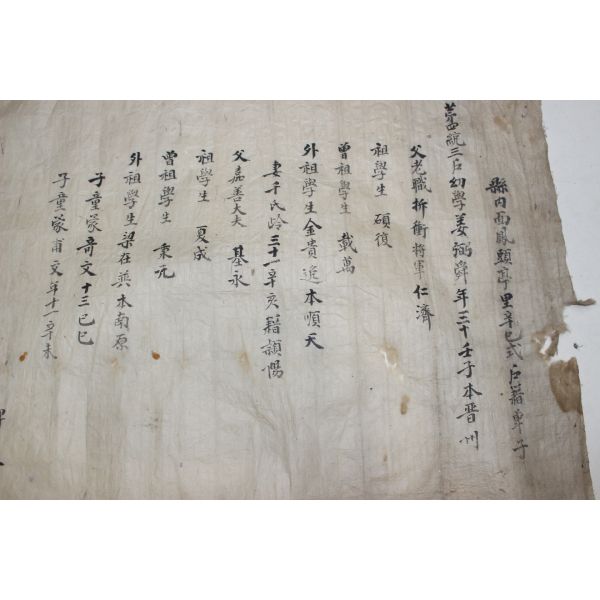 縣內面鳳頭亭里辛巳式戶籍單子
第四統三戶幼學姜弼舜年三十壬子本晋州
父老職折衝將軍 仁濟
祖學生 碩復
曾祖學生 載萬
外祖學生金貴進本順天
妻千氏岭三十一辛亥籍潁陽
父嘉善大夫 基永
祖學生 夏成
曾祖學生 秉元
外祖學生梁在英本南原
子童蒙奇文十三己巳
子童蒙甫文年十一辛未